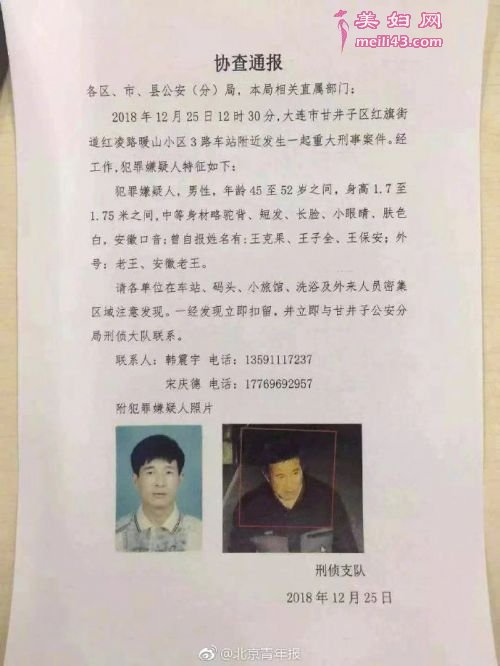 美妇网
meili43.com
协查通报
各区、市、县公安（分）局，本局相关直属部门：
2018年12月25日12时30分，大连市甘井子区红旗街
道红凌路暖山小区3路车站附近发生一起重大刑事案件。经
工作，犯罪嫌疑人特征如下：
犯罪嫌疑人，男性，年龄45至52岁之间，身高1.7至
1.75米之间，中等身材略驼背、短发、长脸、小眼睛、肤色
白，安徽口音；曾自报姓名有：王克果、王子全、王保安；外
号：老王、安徽老王。
请各单位在车站、码头、小旅馆、洗浴及外来人员密集
区域注意发现。一经发现立即扣留，并立即与甘井子公安分
局刑侦大队联系。
联系人：韩震宇 电话：13591117237
宋庆德 电话：17769692957
附犯罪嫌疑人照片
刑侦支队
2018年12月25日
@北京青年报